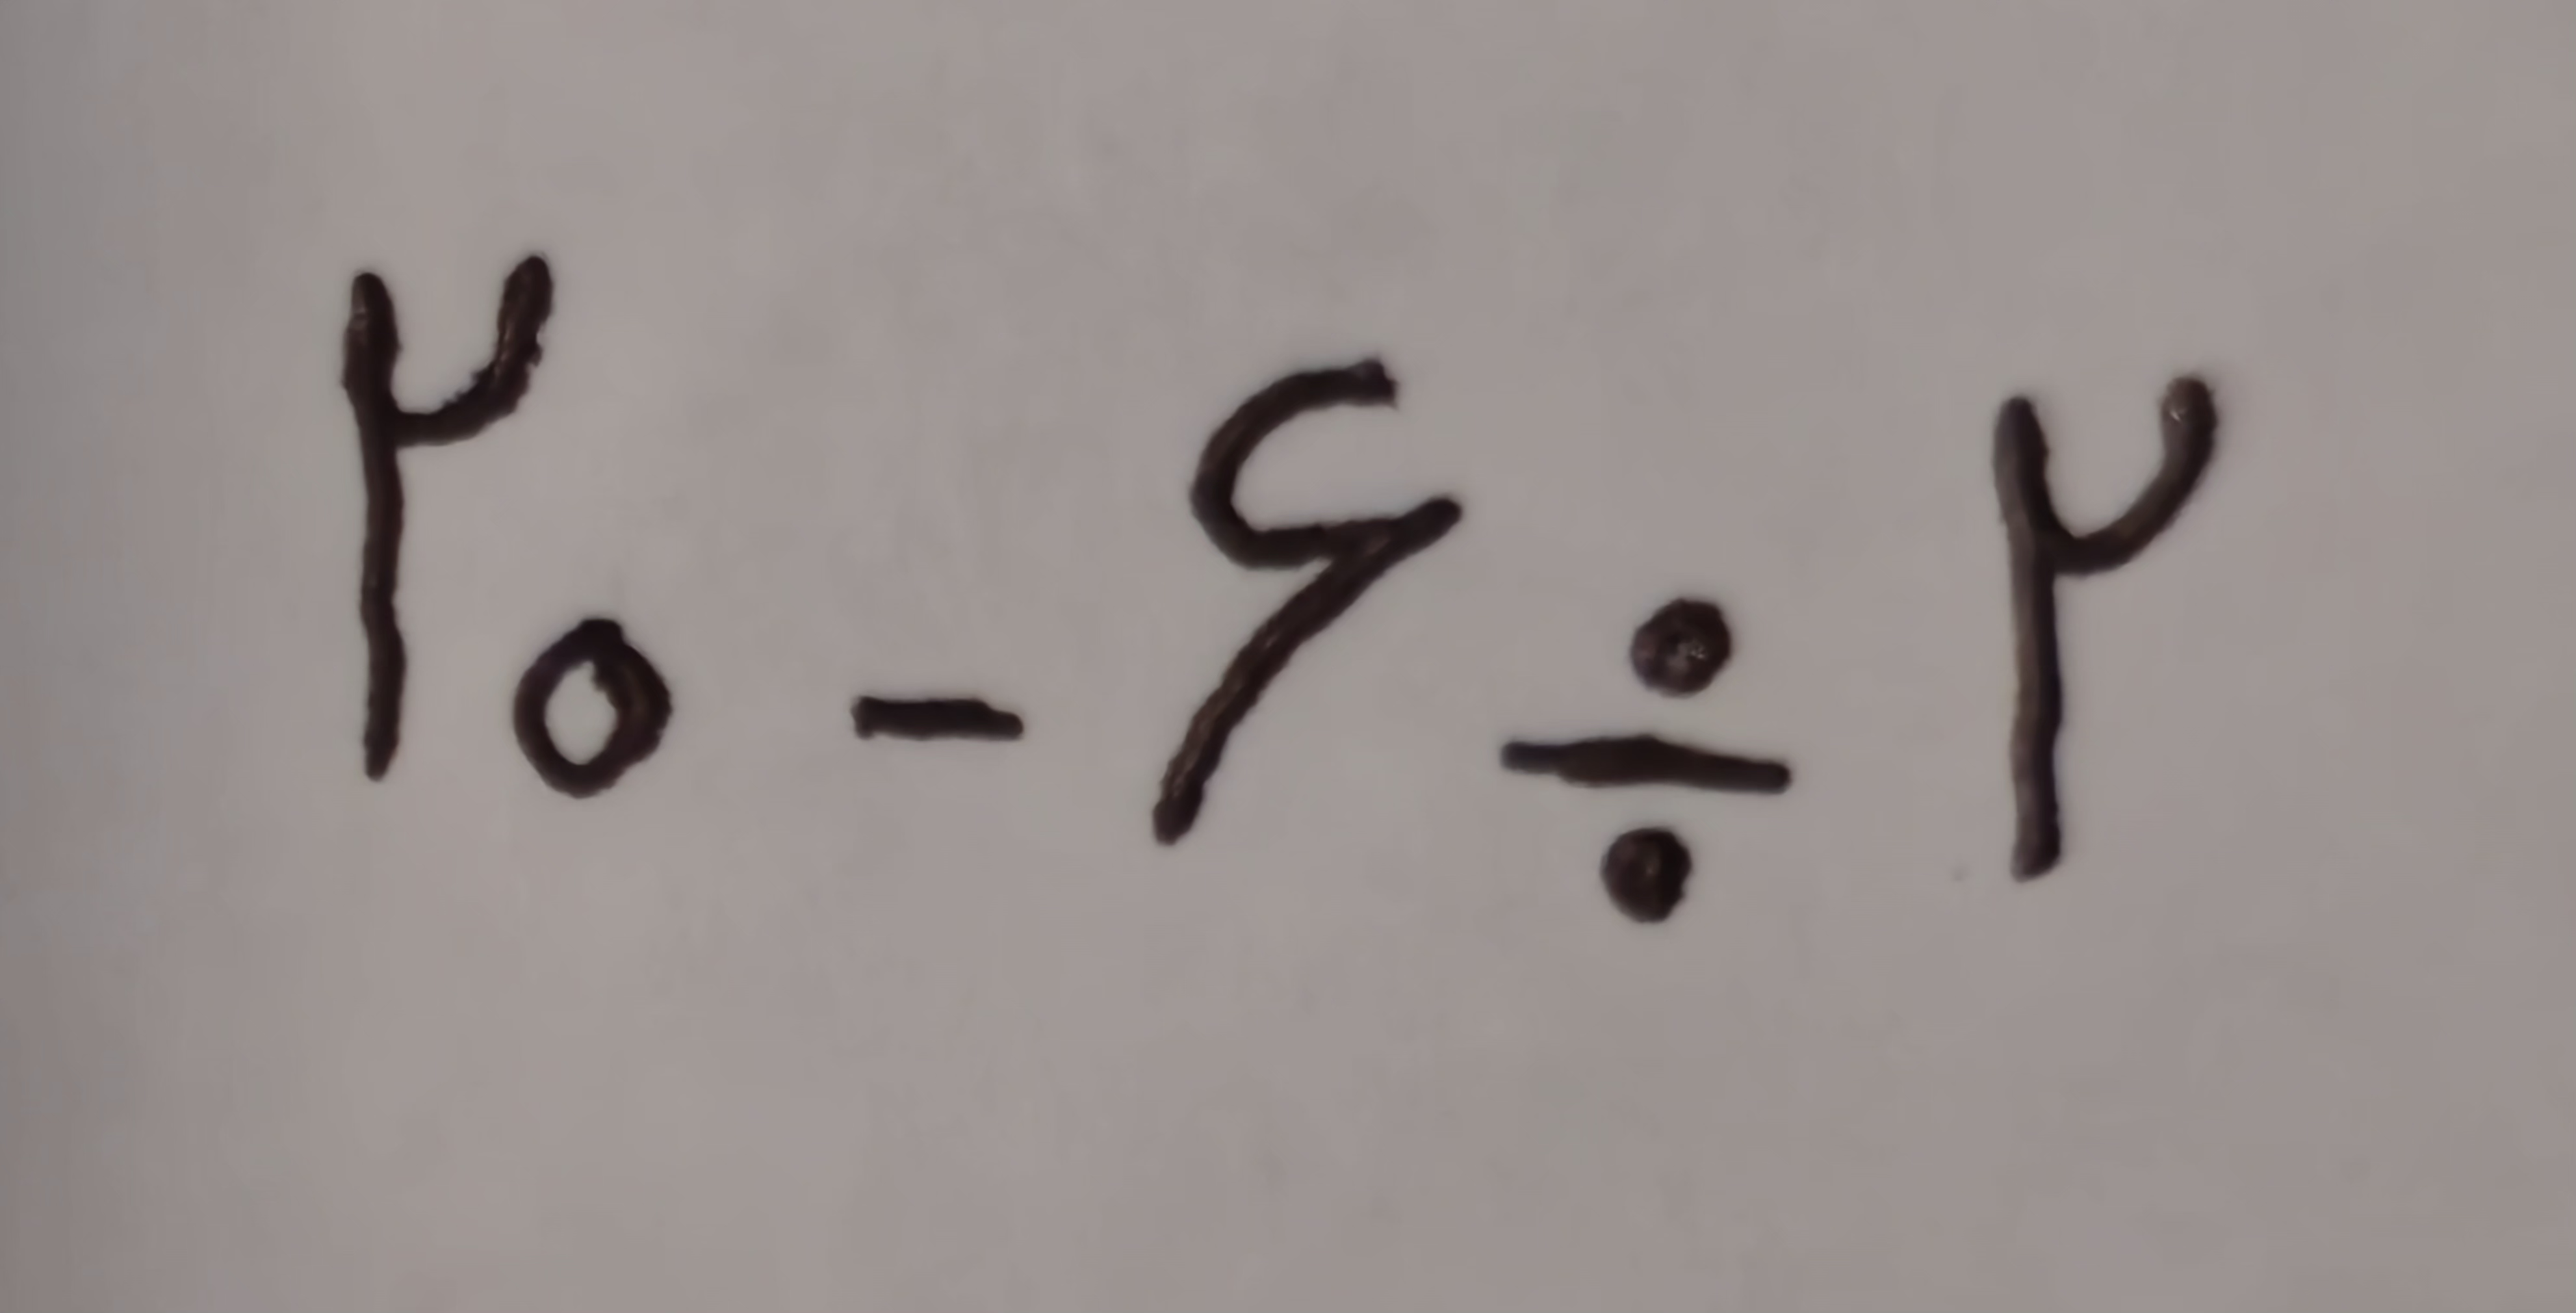 ۲۰ - ۶ ÷ ۲